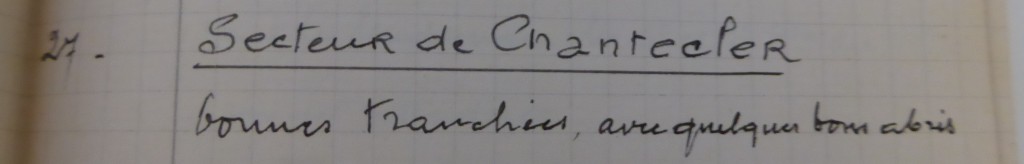 27. Secteur de Chantecler
bonnes tranchées, avec quelques bons abris